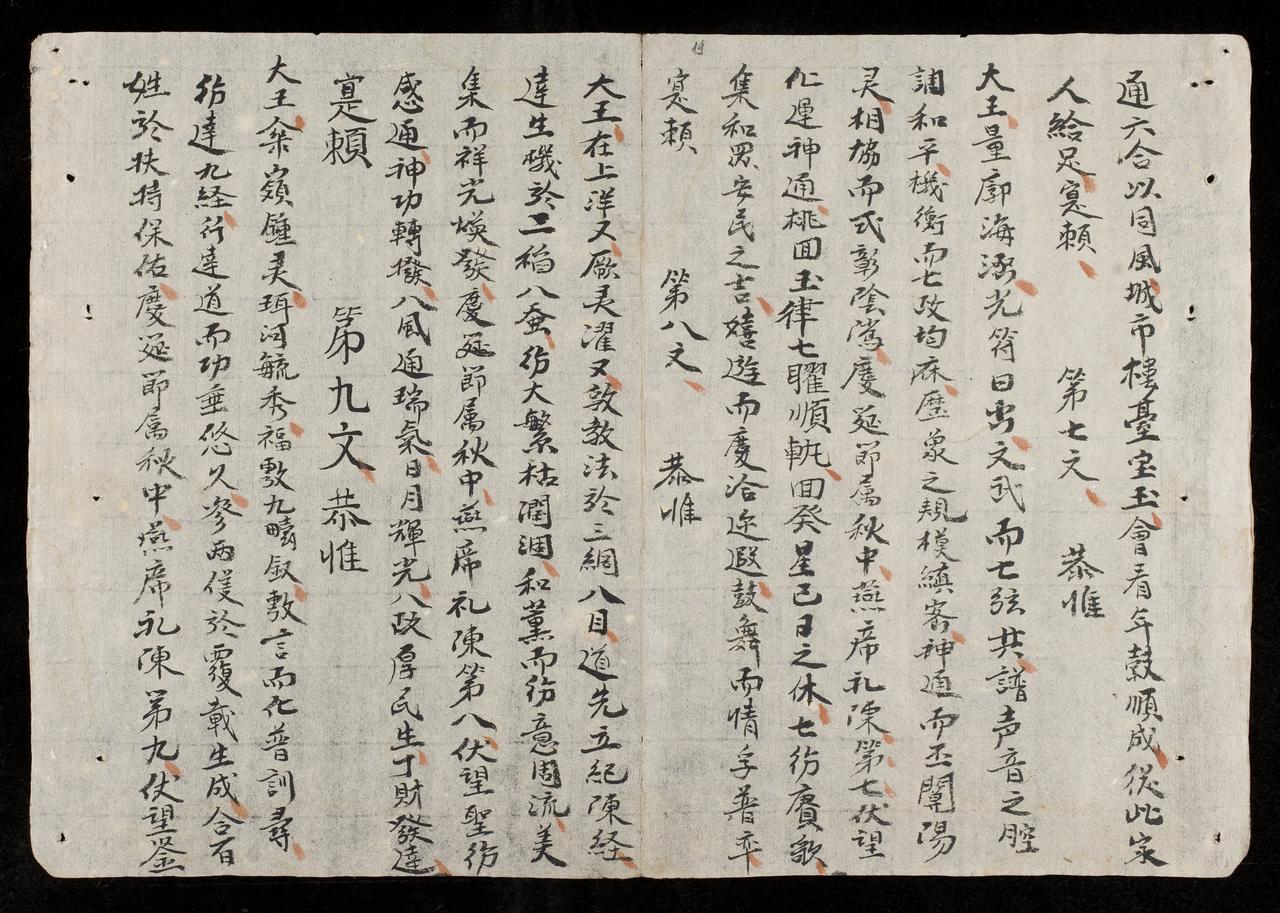 通六合以同風城市樓臺宝玉會看年穀順成從此家
人給足寔頼 第七文 恭惟
大王量廓海涵光符日 文武而七弦共譜声音之腔
調和平機衡而七政均庥歷象之規模縝密神通而丕闡陽
灵相協而式彰陰騭慶筵節属秋中燕席礼陳第七伏望
化運神通桃囬玉律七曜順軌囬癸星己日之休七彷賡歌
集和眾安民之吉嬉遊而慶洽迩遐鼓舞而情孚普率
寔頼 第八文 恭惟
大王在上洋又厥灵濯又敦教法於三綱八目道先立紀陳経
達生機於二稻八蚕彷大繁枯潤涸和薰而彷意周流美
集而祥光煥發慶筵節属秋中燕席礼陳第八伏望聖彷
感通神功轉撥八風通瑞氣日月輝光八政厚民生丁財發達
寔頼 第九文 恭惟
大王傘嶺鍾灵珥河毓秀福敷九疇叙敷言而化普訓尋
彷達九経行達道而功垂悠久参両儀於覆載生成合百
姓於扶持保佑慶筵節属秋中燕席礼陳第九伏望鉴